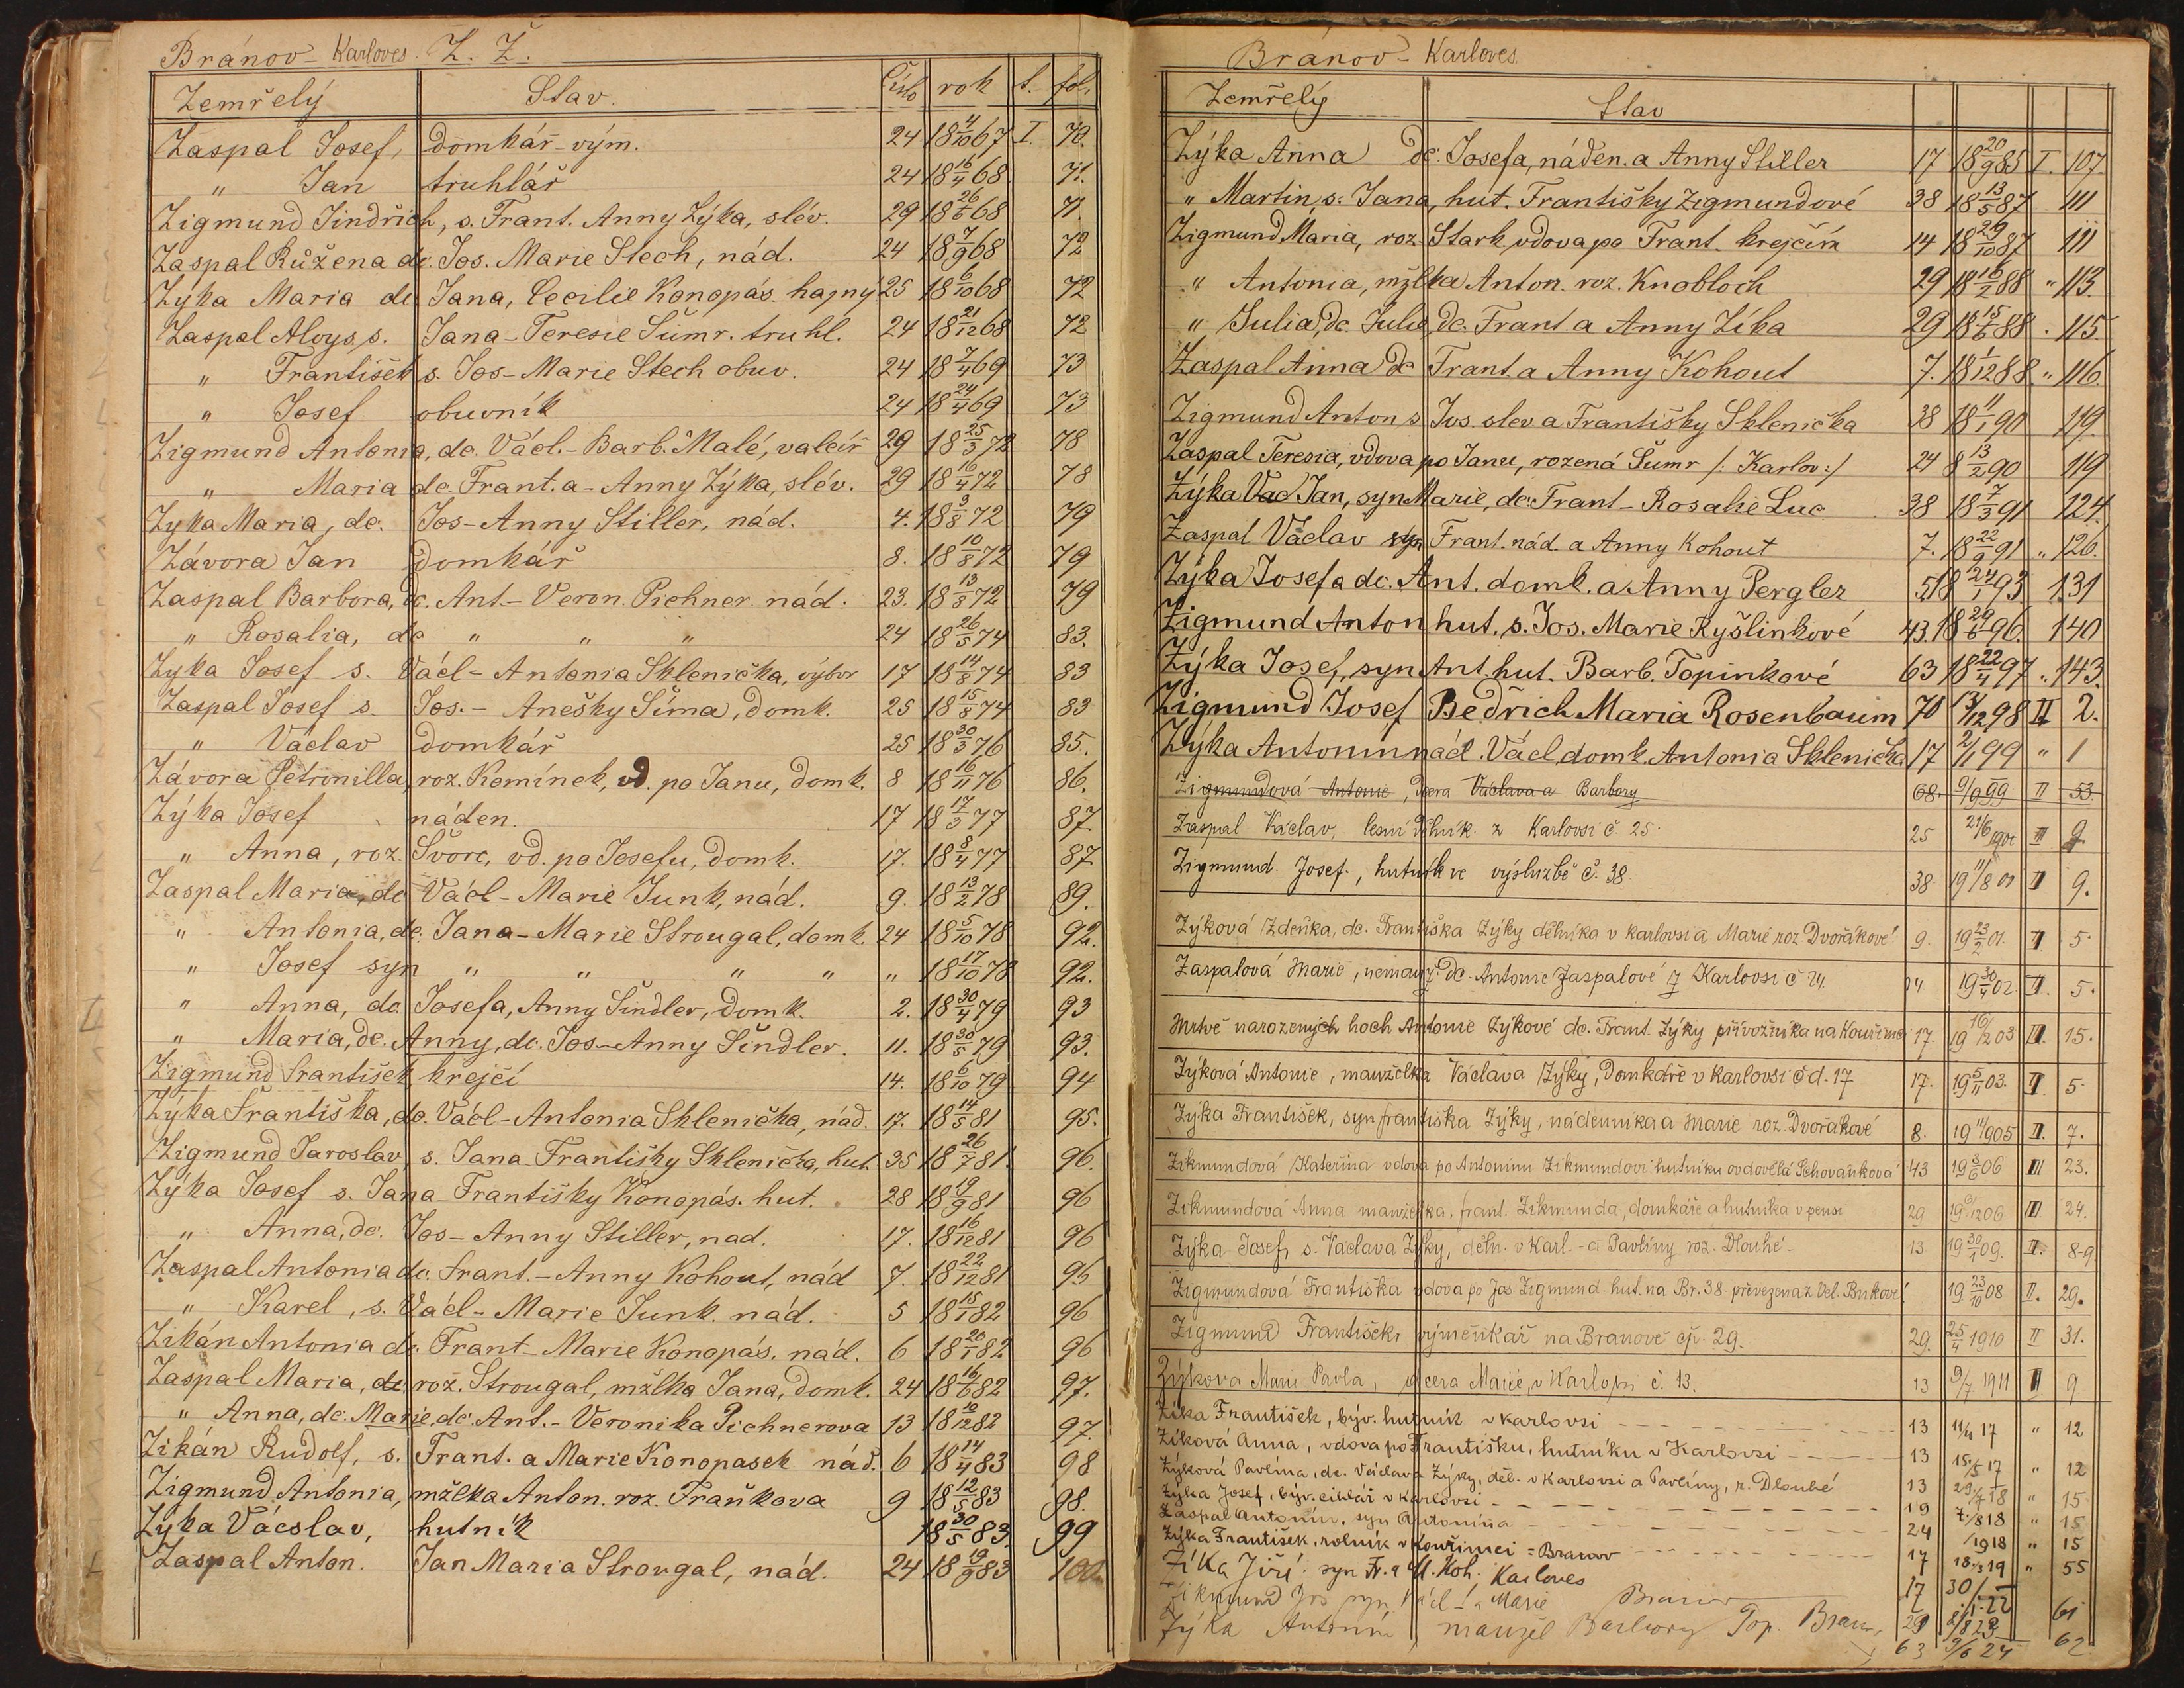 Bránov - Karloves. Z. Ž.
Zemřelý Stav. Číslo rok t. fol.
Zaspal Josef, domkář vým. 24 18 4/10 67 I. 70.
" Jan truhlář 24 18 16/4 68 71.
Zigmund Jindřich, s. Frant. Anny Zýka, slév. 29 18 26/6 68 71.
Zaspal Růžena dc. Jos. Marie Stech, nád. 24 18 7/9 68 72
Zýka Maria dc Jana, Cecilie Konopás. hajný 25 18 6/10 68 72
Zaspal Aloys, s. Jana - Teresie Šumr. truhl. 24 18 21/12 68 72
" František s. Jos - Marie Stech obuv. 24 18 7/4 69 73
" Josef obuvník 24 18 24/4 69 73
Zigmund Antonia, dc. Václ. - Barb. Malé, valcíř 29 18 25/3 72 78
" Maria dc. Frant. a - Anny Zýka, slév. 29 18 16/4 72 78
Zyka Maria, dc. Jos - Anny Stiller, nád. 4. 18 3/8 72 79
Závora Jan domkář 8. 18 10/8 72 79
Zaspal Barbora, dc. Ant. - Veron. Pichner nád. 23. 18 13/8 72 79
" Rosalia, dc " " " 24 18 26/5 74 83.
Zyka Josef s. Václ - Antonia Sklenička, výtvr 17 18 14/8 74 83
Zaspal Josef s. Jos. - Anešky Šíma, domk. 25 18 15/8 74 83
" Václav domkář 25 18 30/3 76 85.
Závora Petronilla, roz. Komínek, vd. po Janu, domk. 8 18 16/11 76 86.
Zýka Josef náden. 17 18 17/3 77 87.
" Anna, roz. Švorc, vd. po Josefu, domk. 17. 18 8/4 77 87
Zaspal Maria, dc Václ - Marie Junk, nád. 9. 18 13/2 78 89.
" Antonia, dc. Jana - Marie Strougal, domk. 24 18 5/10 78 92.
" Josef syn " " " " " 18 17/10 78 92.
" Anna, dc. Josefa, Anny Šindler, domk. 2. 18 30/4 79 93
" Maria, dc. Anny, dc. Jos - Anny Šindler. 11. 18 30/5 79 93.
Zigmund František krejčí 14. 18 6/10 79 94
Zýka Františka, dc. Václ - Antonia Sklenička, nád. 17. 18 14/5 81 95.
Zigmund Jaroslav, s. Jana - Františky Sklenička, hut. 35 18 26/7 81. 96.
Zýka Josef s. Jana - Františky Konopás. hut. 28 18 19/9 81 96
" Anna, dc. Jos - Anny Stiller, nad. 17. 18 16/12 81 96
Zaspal Antonia dc. Frant. - Anny Kohout, nád 7. 18 22/12 81 96
" Karel, s. Václ - Marie Junk. nád. 5 18 15/1 82 96
Zikán Antonia dc. Frant - Marie Konopás. nád. 6 18 20/1 82 96
Zaspal Maria, dc. roz. Strougal, mžlka Jana, domk. 24 18 16/6 82 97.
" Anna, dc. Marie, dc. Ant. - Veronika Pichnerova 13 18 19/12 82 97.
Zikán Rudolf, s. Frant. a Marie Konopasek nád. 6 18 14/4 83 98
Zigmund Antonia, mžlka Anton. roz. Fraňkova 9 18 12/5 83 98.
Zýka Vácslav, hutník 18 30/5 83. 99
Zaspal Anton. Jan Maria Strougal, nád. 24 18 19/9 83 100.
Bránov - Karloves
Zemřelý Stav
Zýka Anna dc. Josefa, náden. a Anny Stiller 17 18 20/9 85 I. 107.
" Martin, s. Jana, hut. Františky Zigmundové 38 18 13/5 87 111
Zigmund Maria, roz. Stark, vdova po Frant. krejčím 14 18 29/10 87 111
" Antonia, mžlka Anton. roz. Knobloch 29 18 16/2 88 " 113.
" Julia, dc. Julie, dc. Frant a Anny Zíka 29 18 15/6 88 . 115.
Zaspal Anna dc Frant. a Anny Kohout 7. 18 1/12 88 " 116.
Zigmund Anton s Jos. slev a Františky Sklenička 38 18 11/1 90 119.
Zaspal Teresia, vdova po Janu, rozená Šumr /: Karlov :/ 24 8 13/2 90 119
Zýka Vad Jan, syn Marie, dc. Frant - Rosalie Luc 38 18 7/3 91 124.
Zaspal Václav syn Frant. nád. a Anny Kohout 7. 18 22/9 91 " 126.
Zýka Josefa dc. Ant. domk. a Anny Pergler 5 18 24/1 93 131
Zigmund Anton hut. s. Jos. Marie Ryšlinkové 43. 18 29/6 96. 140
Zýka Josef, syn Ant. hut. Barb. Topinkové 63 18 22/4 97 " 143.
Zigmund Josef Bedřich Maria Rosenbaum 70 13/12 98 II 2.
Zýka Antonin nád. Václ. domk. Antonia Sklenička 17 2/1 99 " 1
Zigmundová Antonie, dcera Václava a Barbory 68. 9/9 99 II 53.
Zaspal Václav, lesní dělník z Karlovsi č. 25. 25 21/6 1901 II
Zigmund Josef, hutník ve výslužbě č. 38 38 19 11/8 01 II 9.
Zýková Zdeňka, dc. Františka Zýky dělníka v Karlovsi a Marie roz. Dvořákové 9. 19 23/2 01. II 5.
Zaspalová Marie, nemanž. dc. Antonie Zaspalové z Karlovsi č 24. 24 19 30/4 02. II. 5.
Mrtvě narozených hoch Antonie Zýkové dc. Frant. Zýky přívozníka na Kouřimci 17. 19 16/12 03 II. 15.
Zýková Antonie, manželka Václava Zýky, Domkáře v Karlovsi čd. 17 17. 19 5/11 03. II 5.
Zýka František, syn Františka Zýky, nádenníka a Marie roz. Dvořákové 8. 19 11/9 05 II. 7.
Zikmundová Kateřina vdova po Antonínu Zikmundovi hutníku ovdovělá Schovánková 43 19 3/6 06 III 23.
Zikmundová Anna manželka, frant. Zikmunda, domkáře a hutníka v pensi 29 19 9/12 06 III 24.
Zýka Josef, s. Václava Zýky, děln. v Karl. - a Pavlíny roz. Dlouhé - 13 19 30/1 09. II. 8-9
Zigmundová Františka vdova po Jos Zigmund hut. na Br. 38 převezena z Vel. Bukové 19 23/10 08 II. 29.
Zigmund František, výměnkář na Branově čp. 29. 29. 25/4 1910 II 31.
Zýkova Marie Pavla, dcera Marie, v Karlovsi č. 13. 13 9/7 1911 II 9
Zíka František, býv. hutník v Karlovsi 13 11/4 17 " 12
Zíková Anna, vdova po Františku, hutníku v Karlovsi 13 15/5 17 " 12
Zýková Pavlína, dc. Václava Zýky, děl. v Karlovsi a Pavlíny, r. Dlouhé 13 23/7 18 " 15
Zýka Josef, býv. cihlář v Karlovsi 19 7/8 18 " 15
Zaspal Antonín, syn Antonína 24 1918 " 15
Zýka František, rolník v Kouřimci = Branov 17 18/3 19 " 55
Zíka Jiří syn Fr. a M. Koh. Karloves 17 30/
Zikmund Jos syn Václ - a Marie Branov 29 61
Zýka Antonín manžel Barbory Top. Branov 63 9/6 24 62